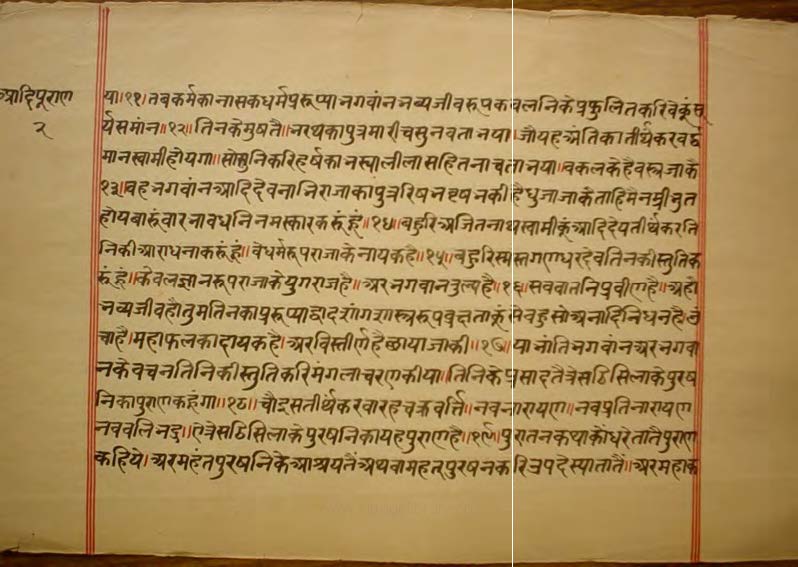 आदिपूराण
२
या॥११॥ तब कर्म का नासक धर्म प्ररूप्या भगवांन भव्य जीव रूप कवल निके प्रफुलित करिवेकूं सू
र्य समांन॥१२॥ तिनके मुषतै॥ भरथ का पुत्र मारीच सुनवता भया। जो यह अंतिका तीर्थकर वर्द्ध
मान स्वामी होयगा॥ सो सुनि करि हर्ष का भस्या लीला सहित नाचता भया॥ वकल के है वस्त्र जाके
१३॥ वह भगवांन आदिदेव नाभिराजा का पुत्र रिषभ वृषभ की है धुजा जाके ताहि मै नम्रीभुत
होय बारुंवार भावधनि नमस्कार करूं हूं॥१४॥ बहुरि अजितनाथ स्वामी कूं आदि दे य तीर्थकर ति
निकी आराधना करूं हूं॥ वे धर्म रूप राजा के नायक है॥१५॥ बहुरि स्मस्त गणधर देव तिनकी स्तुति क
रूं हूं॥ केवल ज्ञान रूप राजा के युगराज है॥ अर भगवान तुल्य है॥१६॥ सव वात नि प्रवीण है॥ अहो
भव्य जीव हो तुम तिनका प्ररूप्या द्वादशांग शास्त्र रूप वृक्ष ताकूं सेवहु सो अनादि निधन है उं
चा है। महाफल का दायक है॥ अर विस्तीर्ण है छाया जाकी॥१७॥ या भांति भगवान अर भगवा
न के वचन तिनिकी स्तुति करि मंगलाचरण कीया॥ तिनिके प्रसाद तै त्रेसठि सिलाके पुरष
निका पुराण कहूंगा॥१८॥ चौइस तीर्थकर वारह चक्रवर्त्ति॥ नव नारायण॥ नव प्रतिनारायण
नव वलिभद्र॥ ऐ त्रेसठि सिलाके पुरषनिका यह पुराण है॥१९॥ पुरातन कथा कौं धरे तातै पुराण
कहिये। अर महंत पुरषनिके आश्रय तैं अथवा महत् पुरषन करि उपदेस्या तातैं॥ अर महा क